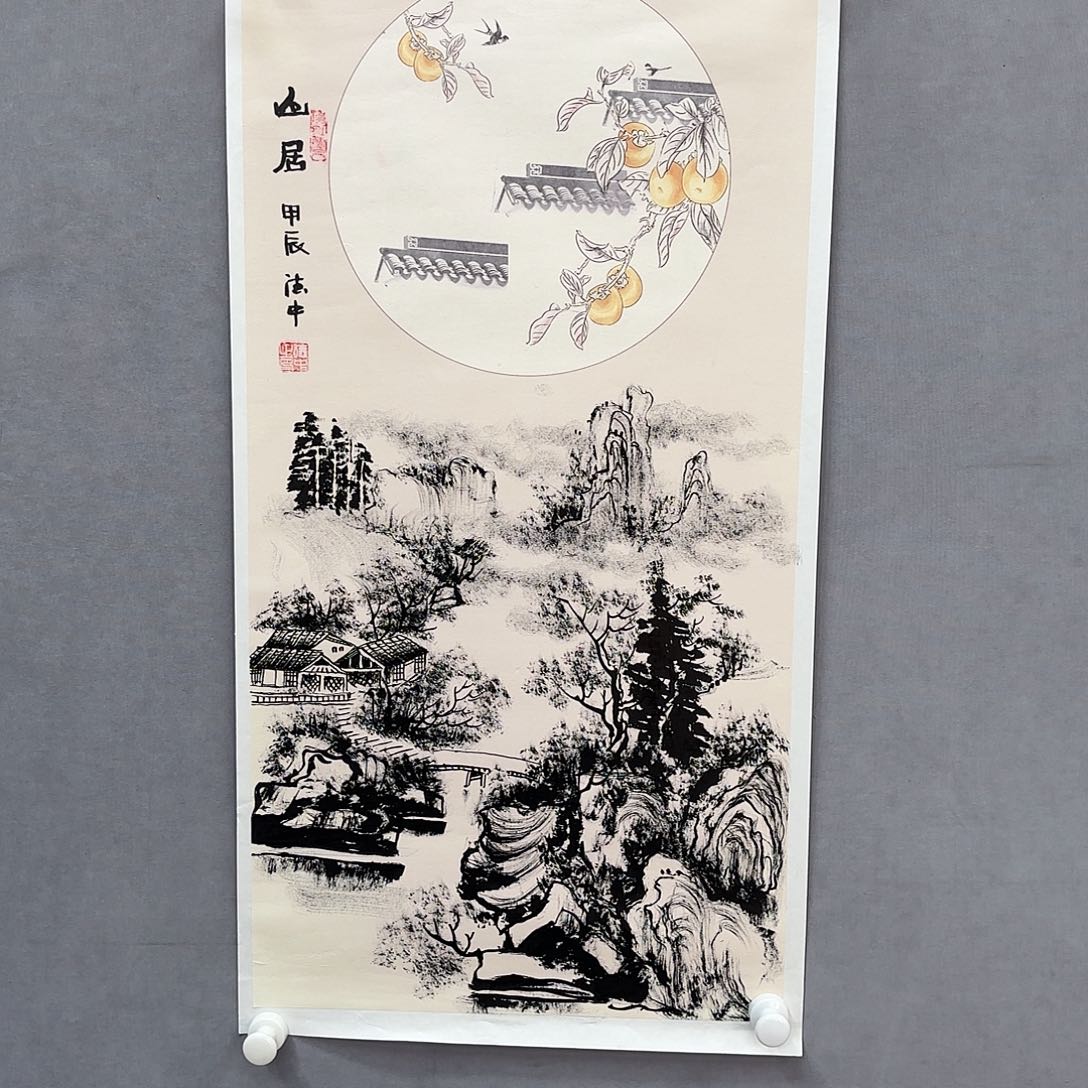 山居
甲辰 法中